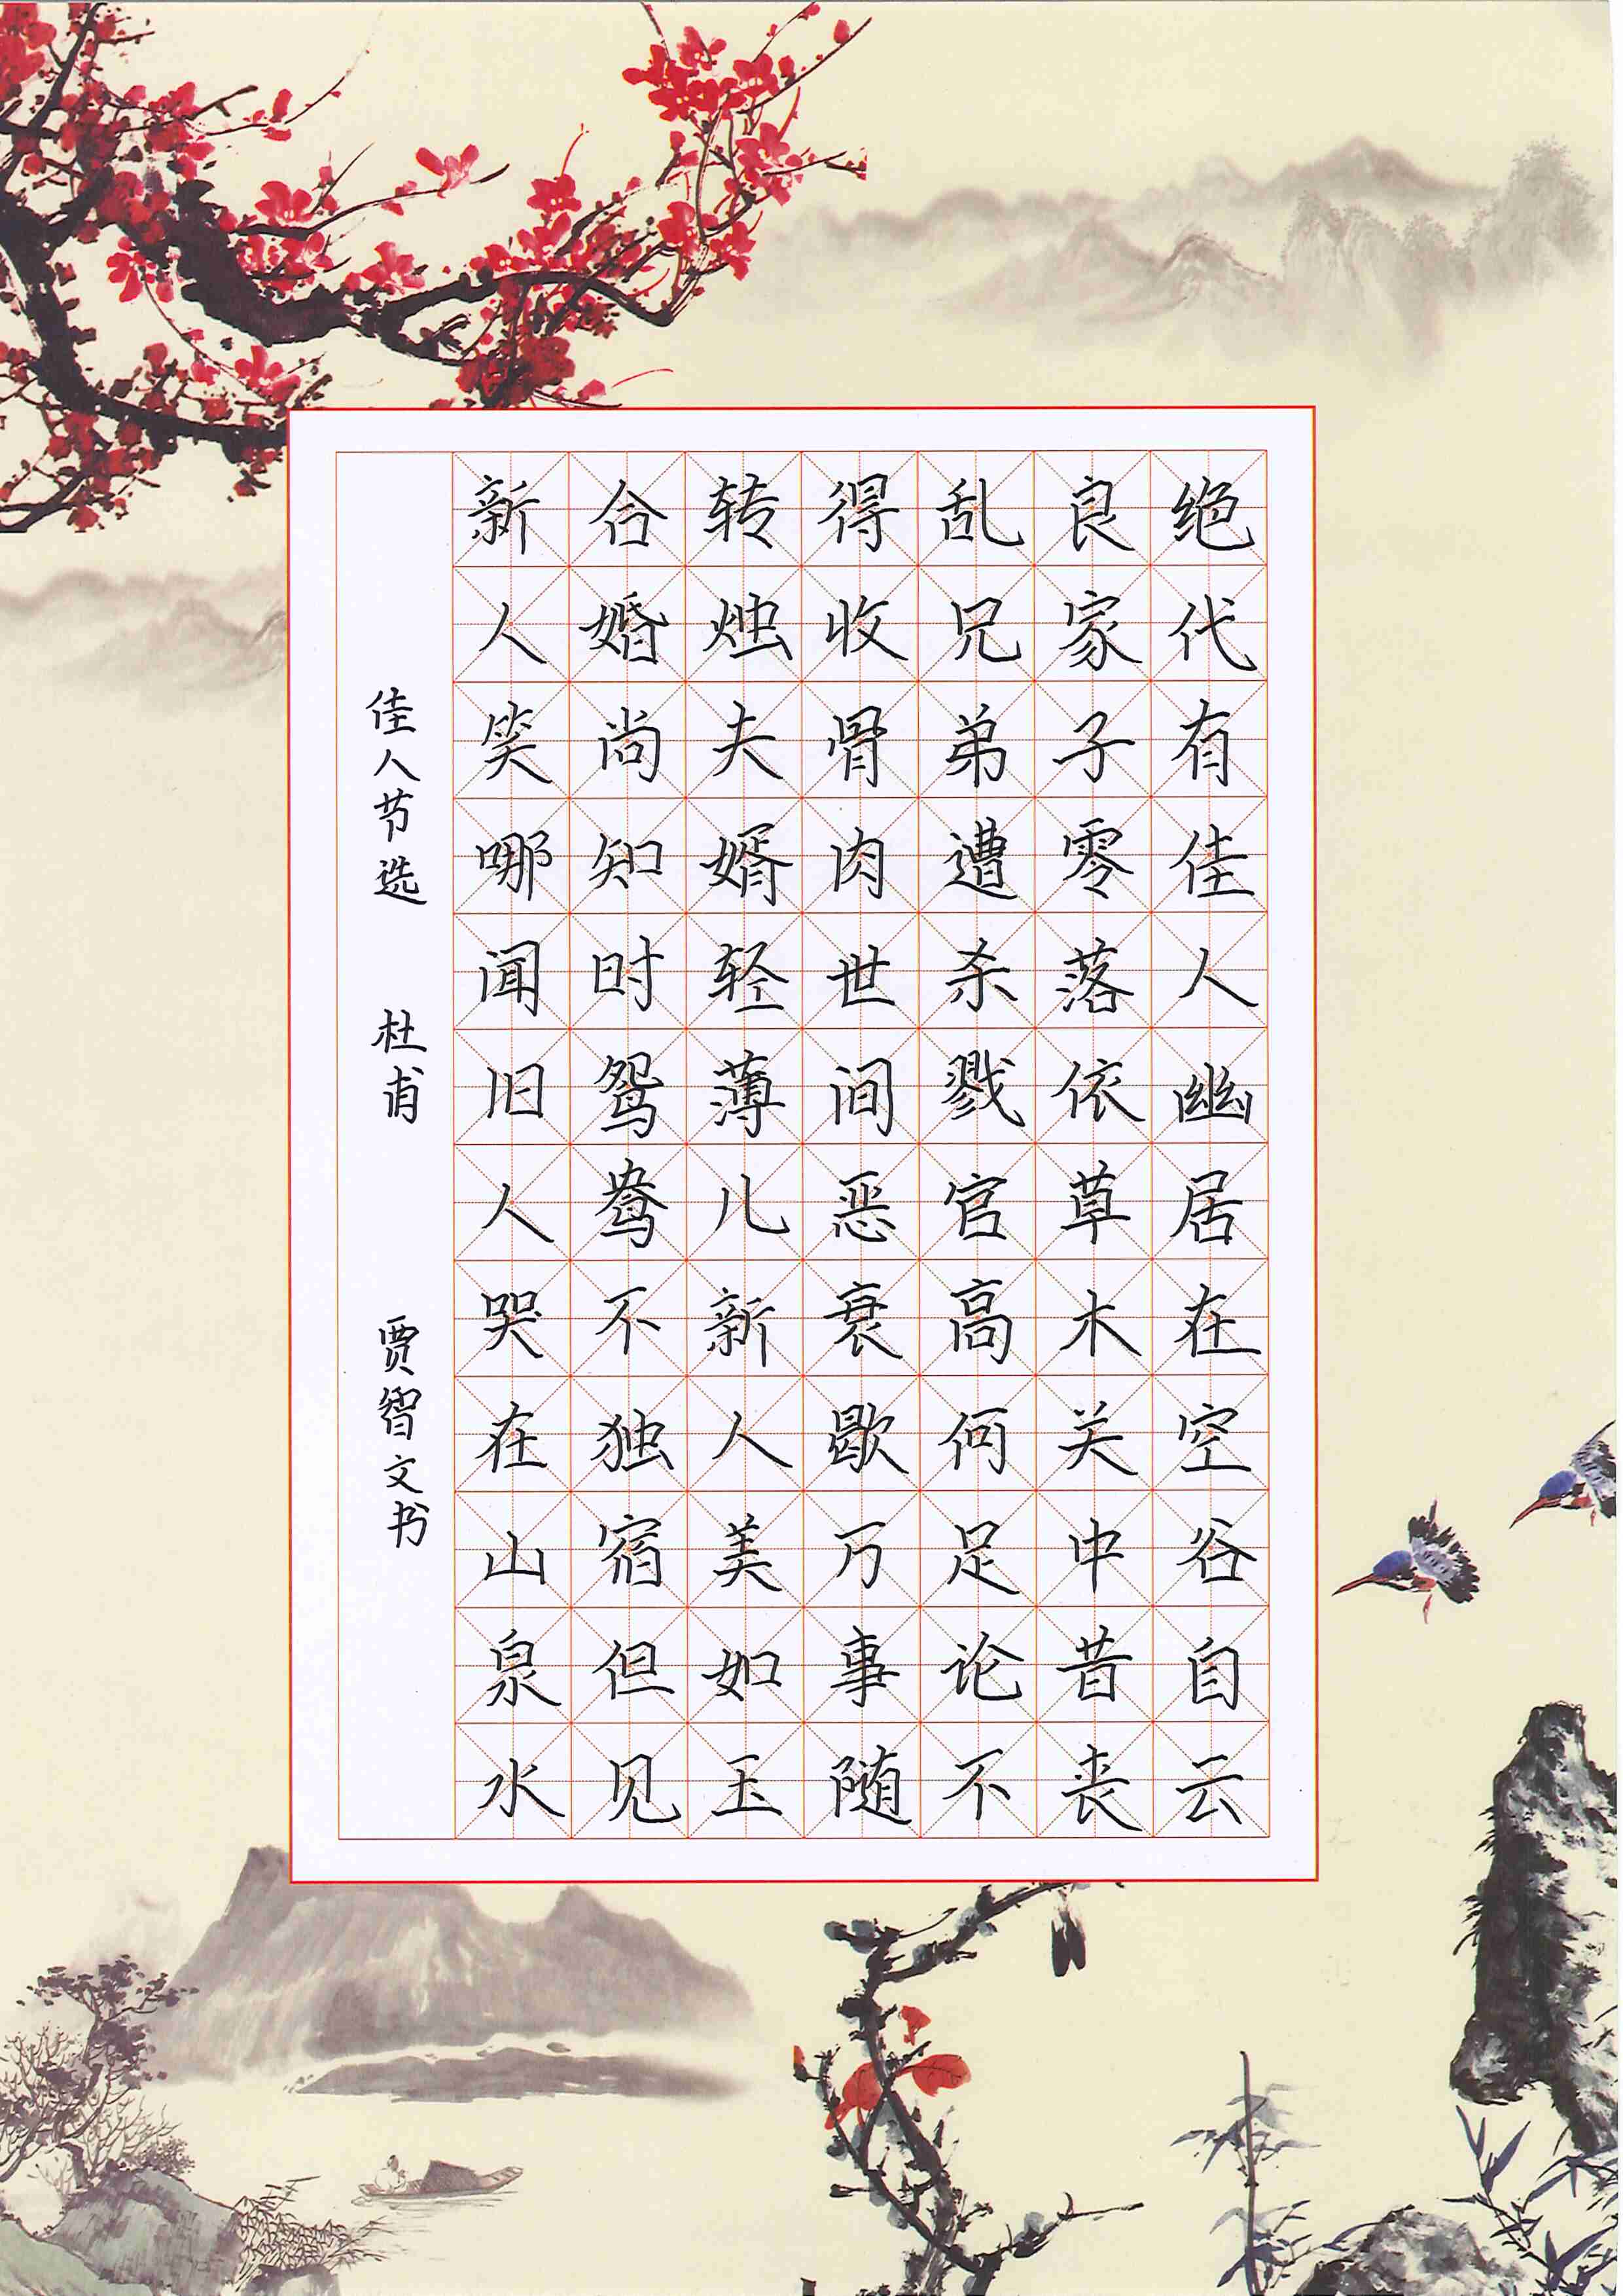 绝代有佳人幽居在空谷自云
良家子零落依草木关中昔丧
乱兄弟遭杀戮官高何足论不
得收骨肉世间恶衰歇万事随
转烛夫婿轻薄儿新人美如玉
合婚尚知时鸳鸯不独宿但见
新人笑哪闻旧人哭在山泉水
佳人节选 杜甫 贾智文书